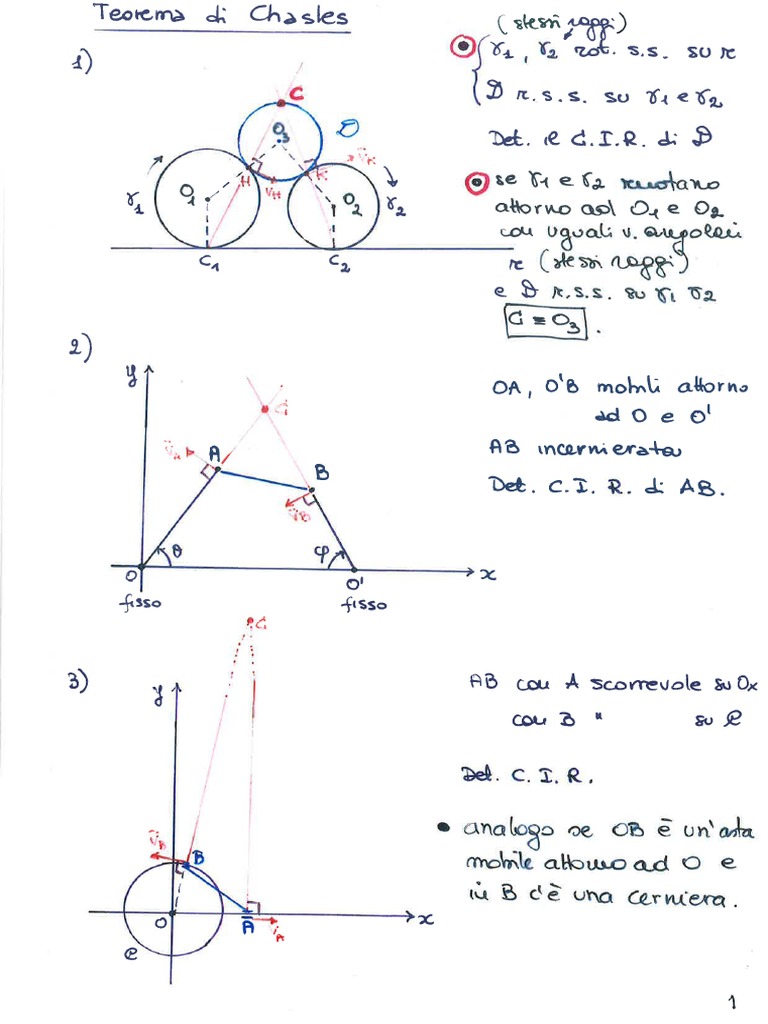 Teorema di Chasles
1)
(stessi raggi)
γ1, γ2 rot. s.s. su r
D r.s.s. su γ1 e γ2
Det. il C.I.R. di D
C
O3
D
H
K
v̄H
v̄K
γ1
O1
O2
γ2
C1
C2
se γ1 e γ2 ruotano
attorno ad O1 e O2
con uguali v. angolari
r (stessi raggi)
e D r.s.s. su γ1 γ2
C ≡ O3 .
2)
y
C
v̄A
A
B
v̄B
θ
φ
O
O'
x
fisso
fisso
OA, O'B mobili attorno
ad O e O'
AB incernierata
Det. C.I.R. di AB.
3)
C
y
v̄B
B
O
A
v̄A
x
C
AB con A scorrevole su Ox
con B " su C
Det. C.I.R.
• analogo se OB è un'asta
mobile attorno ad O e
in B c'è una cerniera.
1